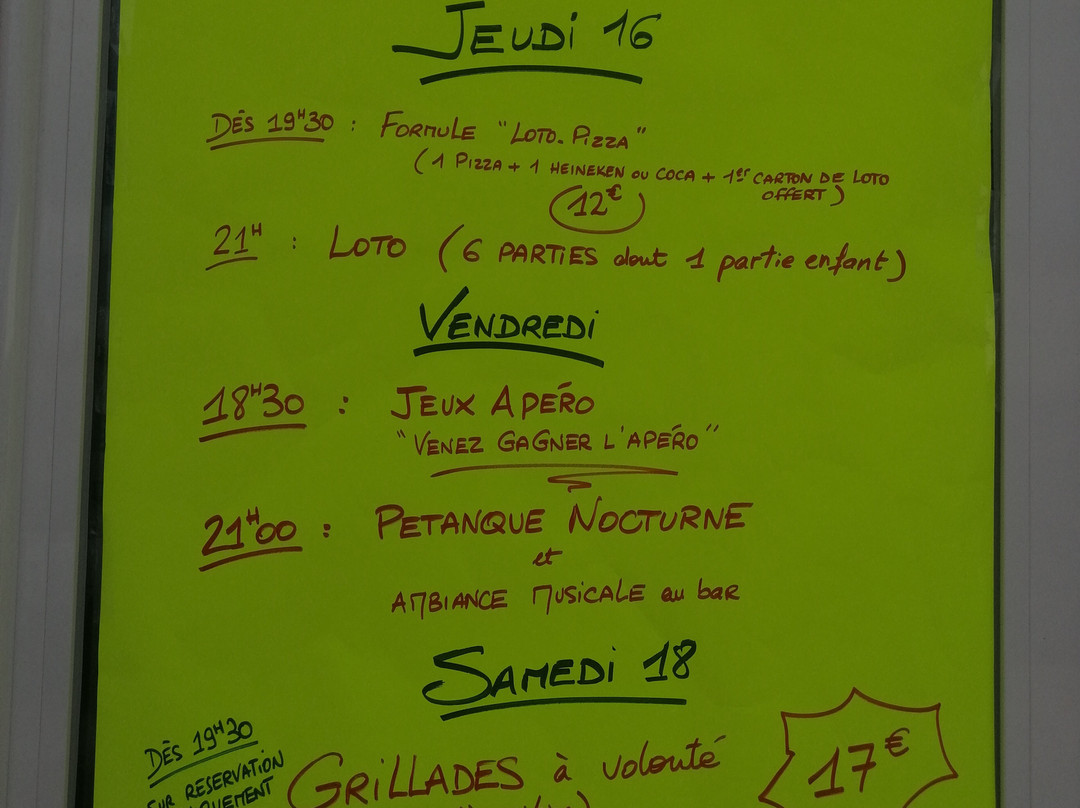 JEUDI 16
DÈS 19H30 : FORMULE "LOTO-PIZZA"
(1 PIZZA + 1 HEINEKEN ou COCA + 1er CARTON DE LOTO
OFFERT)
12€
21H : LOTO (6 PARTIES dont 1 partie enfant)
VENDREDI
18H30 : JEUX APÉRO
"VENEZ GAGNER L'APÉRO"
21H00 : PETANQUE NOCTURNE
et
AMBIANCE MUSICALE au baR
SAMEDI 18
DÈS 19H30
SUR RESERVATION
GRILLADES à volonté
17€